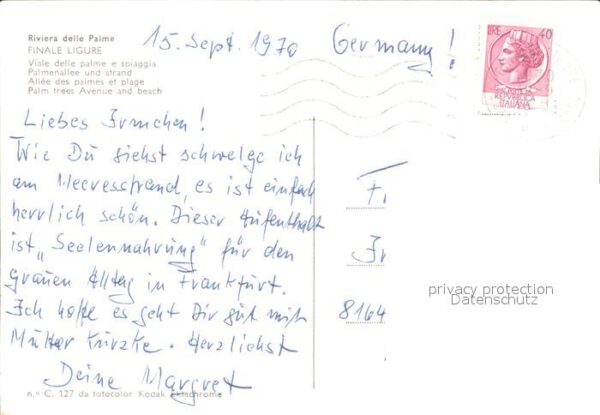 Riviera delle Palme
FINALE LIGURE
Viale delle palme e spiaggia
Palmenallee und strand
Allée des palmes et plage
Palm trees Avenue and beach
15. Sept. 1970 Germany!
LIRE 40
REPVBBLICA
ITALIANA
Liebes Irmchen!
Wie Du siehst schwelge ich
am Meeresstrand, es ist einfach
herrlich schön. Dieser Aufenthalt
ist „Seelennahrung" für den
grauen Alltag in Frankfurt.
Ich hoffe es geht Dir gut mit
Mutter Kurzke. Herzlichst
Deine Margret
F.
Ir
8164
privacy protection
Datenschutz
n.º C. 127 da fotocolor Kodak Ektachrome